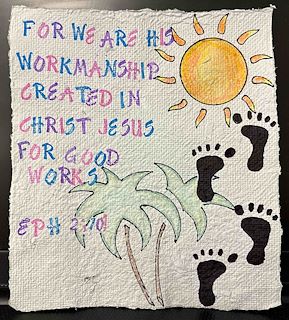 FOR WE ARE HIS
WORKMANSHIP
CREATED IN
CHRIST JESUS
FOR GOOD
WORKS
EPH 2:10